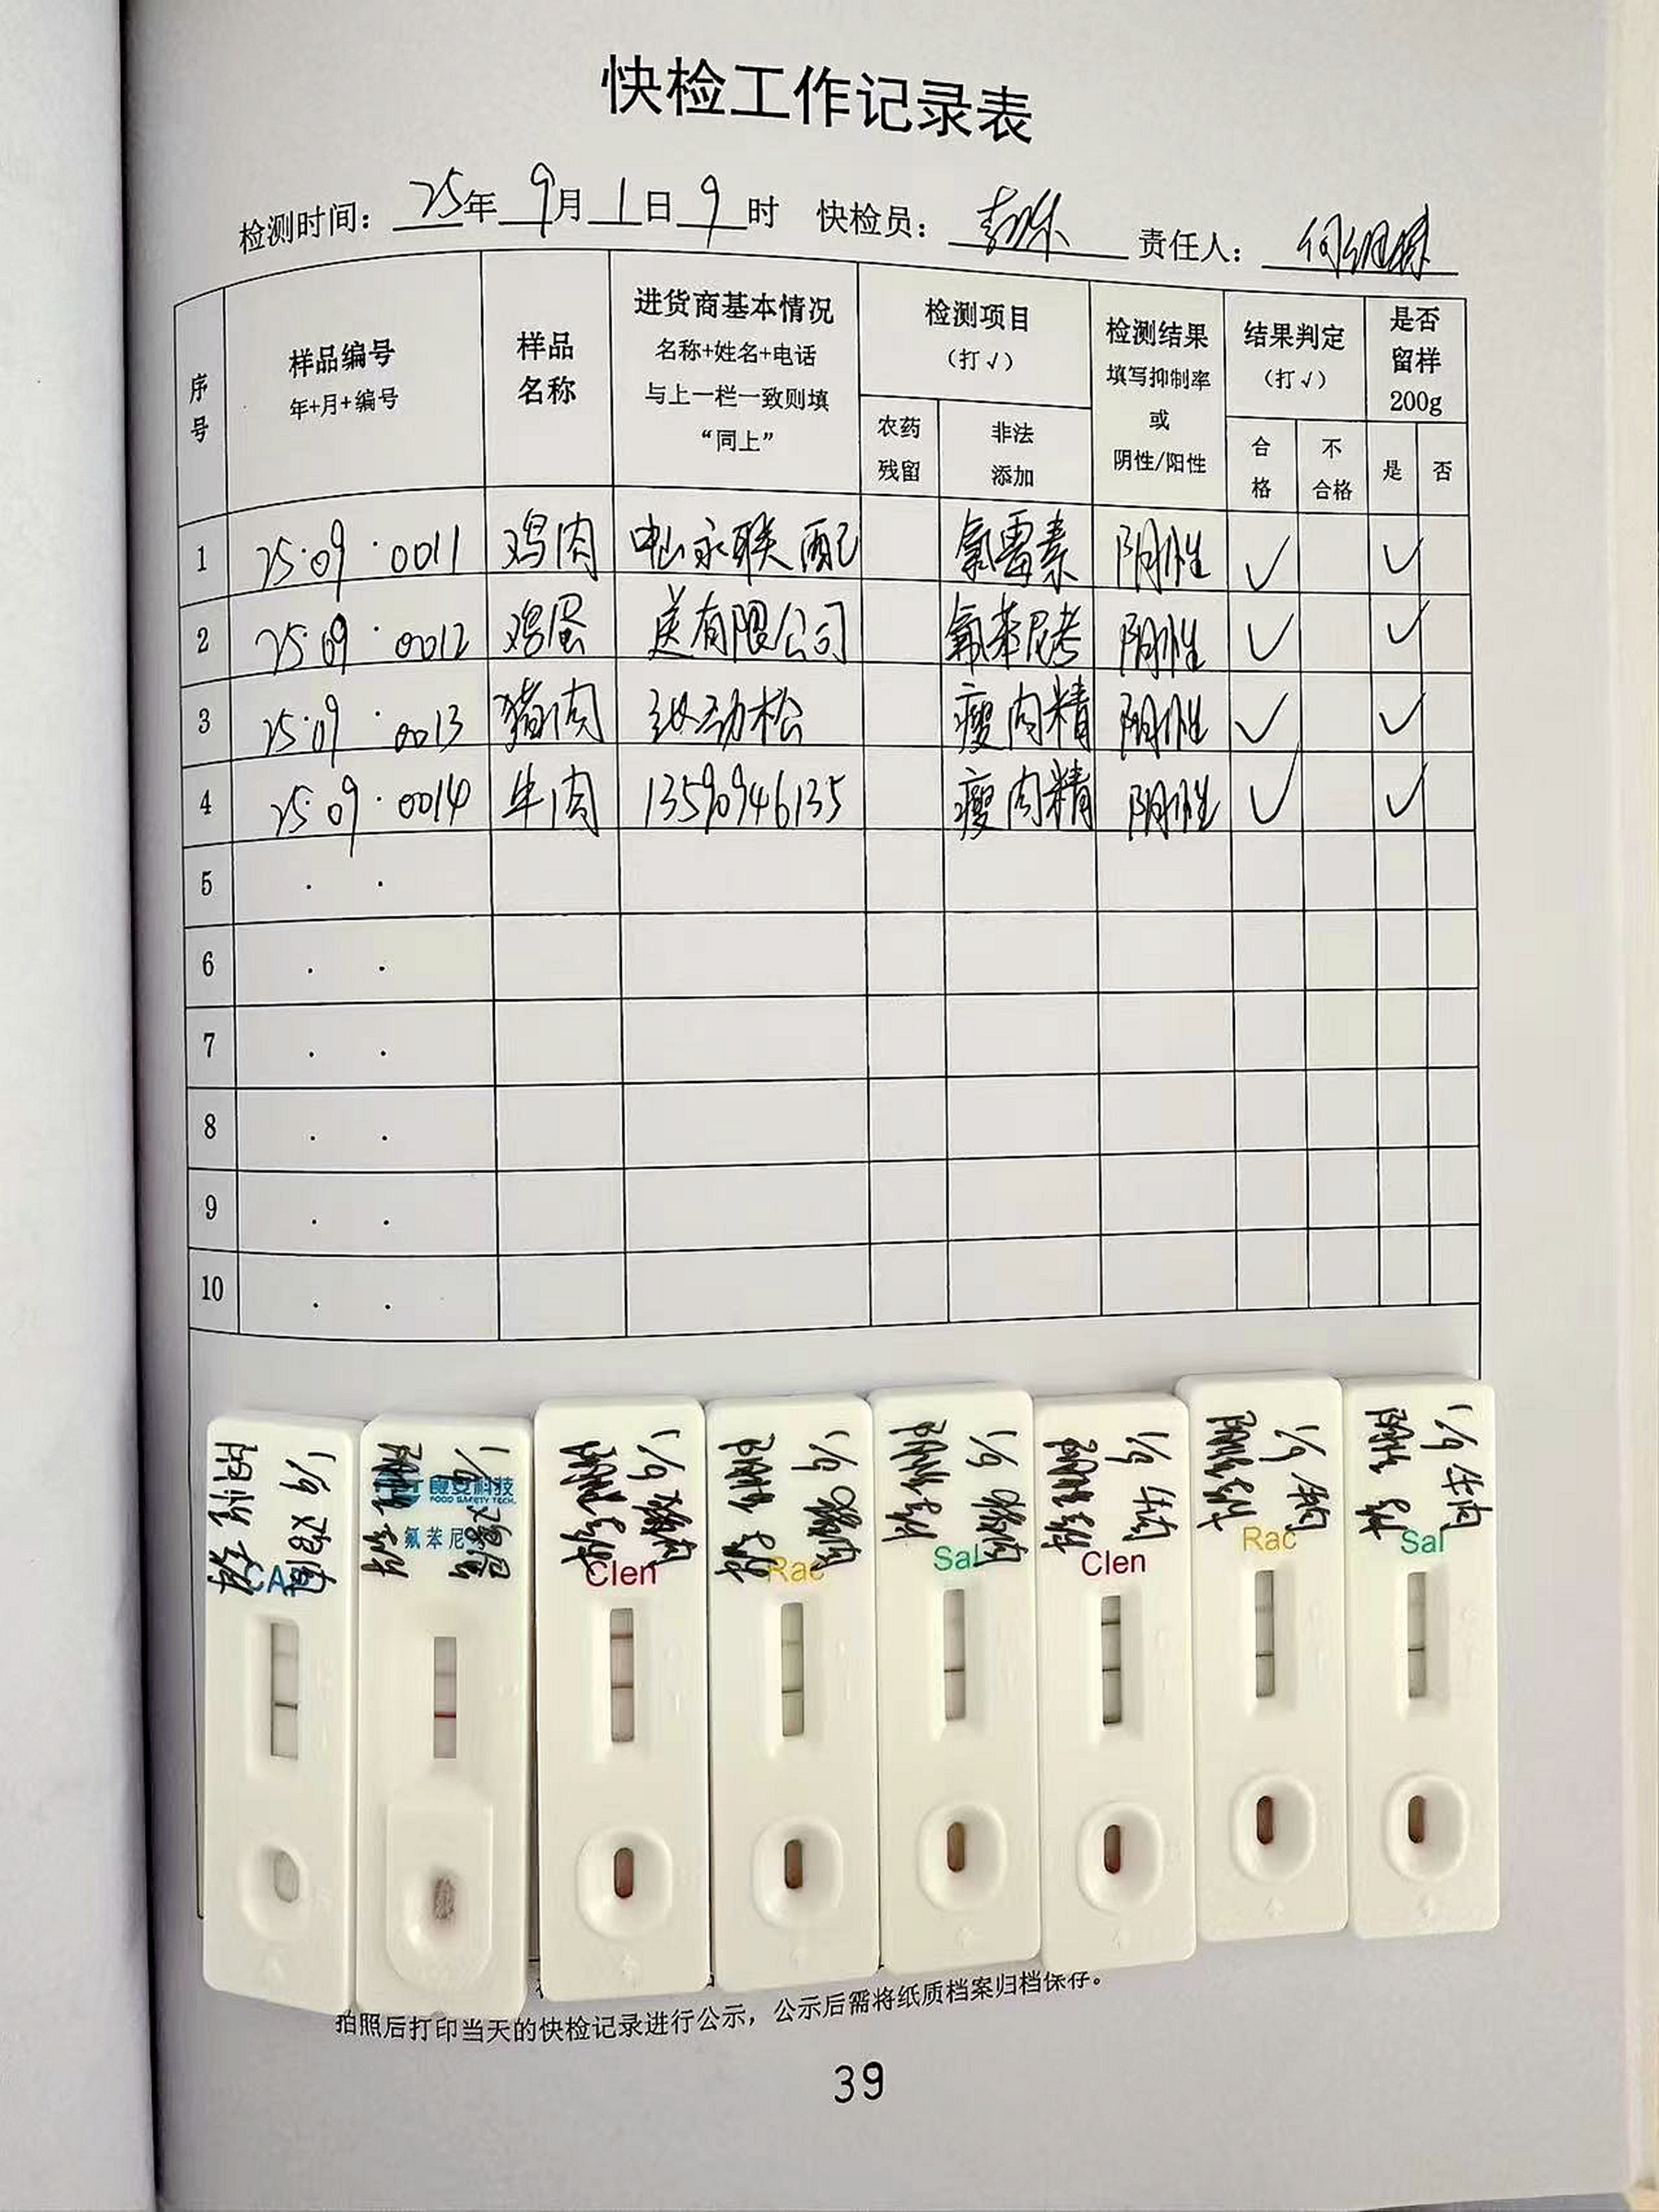 快检工作记录表
检测时间: 25年 9月 1日 9时 快检员: 责任人:
序号 样品编号 年+月+编号 样品名称 进货商基本情况 名称+姓名+电话 与上一栏一致则填 “同上” 检测项目 (打√) 农药残留 非法添加 检测结果 填写抑制率 或 阴性/阳性 结果判定 (打√) 合格 不合格 是否留样 200g 是 否
1 25·09·0011 鸡肉 中山永联配 氯霉素 阴性 √ √
2 25·09·0012 鸡蛋 送有限公司 氟苯尼考 阴性 √ √
3 25·09·0013 猪肉 劲松 瘦肉精 阴性 √ √
4 25·09·0014 牛肉 13590946135 瘦肉精 阴性 √ √
5 · ·
6 · ·
7 · ·
8 · ·
9 · ·
10 · ·
1/9 鸡肉 阴性
CA
1/9 鸡蛋 阴性
良安科技
FOOD SAFETY TECH.
氟苯尼
1/9 猪肉 阴性
Clen
1/9 猪肉 阴性
Rac
1/9 猪肉 阴性
Sal
1/9 牛肉 阴性
Clen
1/9 牛肉 阴性
Rac
1/9 牛肉 阴性
Sal
拍照后打印当天的快检记录进行公示，公示后需将纸质档案归档保存。
39